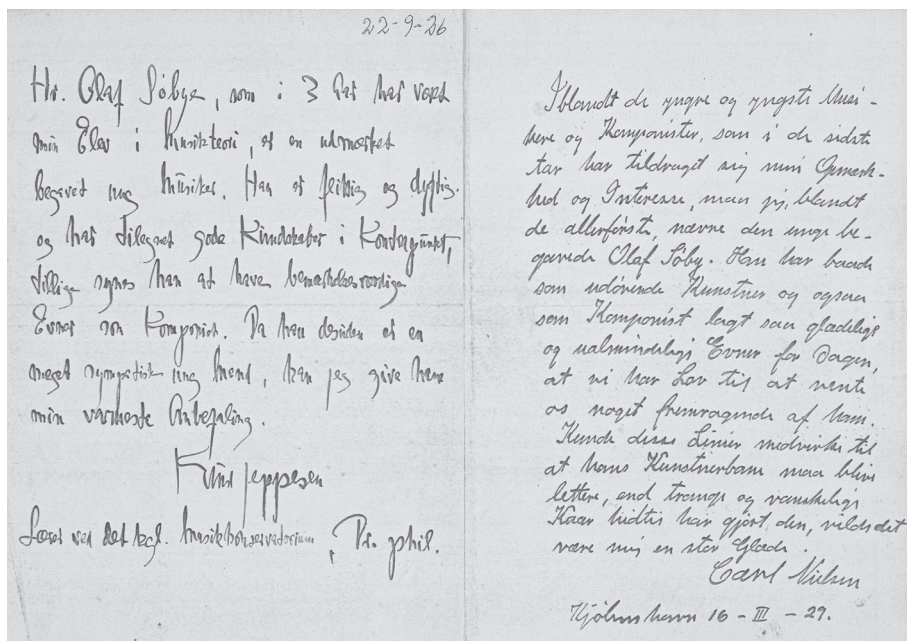 22-9-26
Hr. Olaf Søbye, som i 3 Aar har været
min Elev i Musikteori, er en udmærket
begavet ung Musiker. Han er flittig og dygtig
og har tilegnet gode Kundskaber i Kontrapunkt,
tillige synes han at have bemærkelsesværdige
Evner som Komponist. Da han desuden er en
meget sympatisk ung Mand, kan jeg give ham
min varmeste Anbefaling.
Knud Jeppesen
Lærer ved det kgl. Musikkonservatorium, Dr. phil.
Iblandt de yngre og yngste Musi-
kere og Komponister, som i de sidste
Aar har tildraget sig min Opmærk-
hed og Interesse, maa jeg, blandt
de allerførste, nævne den unge be-
gavede Olaf Søby. Han har baade
som udøvende Kunstner og ogsaa
som Komponist lagt saa glædelige
og ualmindelige Evner for Dagen,
at vi har Lov til at vente
os noget fremragende af ham.
Kunde disse Linier medvirke til
at hans Kunstnerbane maa blive
lettere, end trange og vanskelige
Kaar hidtil har gjort den, vilde det
være mig en stor Glæde.
Carl Nielsen
Kjøbenhavn 16 - III - 29.